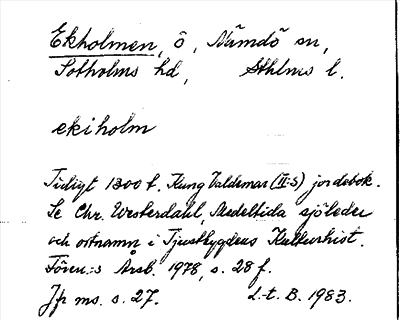 Ekholmen, ö, Nämdö sn,
Sotholms hd, Sthlms l.
ekiholm
Tidigt 1300 t. Kung Valdemar (II:s) jordebok.
Se Chr. Westerdahl, Medeltida sjöleder
och ortnamn i Tjustbygdens Kulturhist.
Fören:s Årsb. 1978, s. 28 f.
Jfr ms. s. 27. L-t. B. 1983.